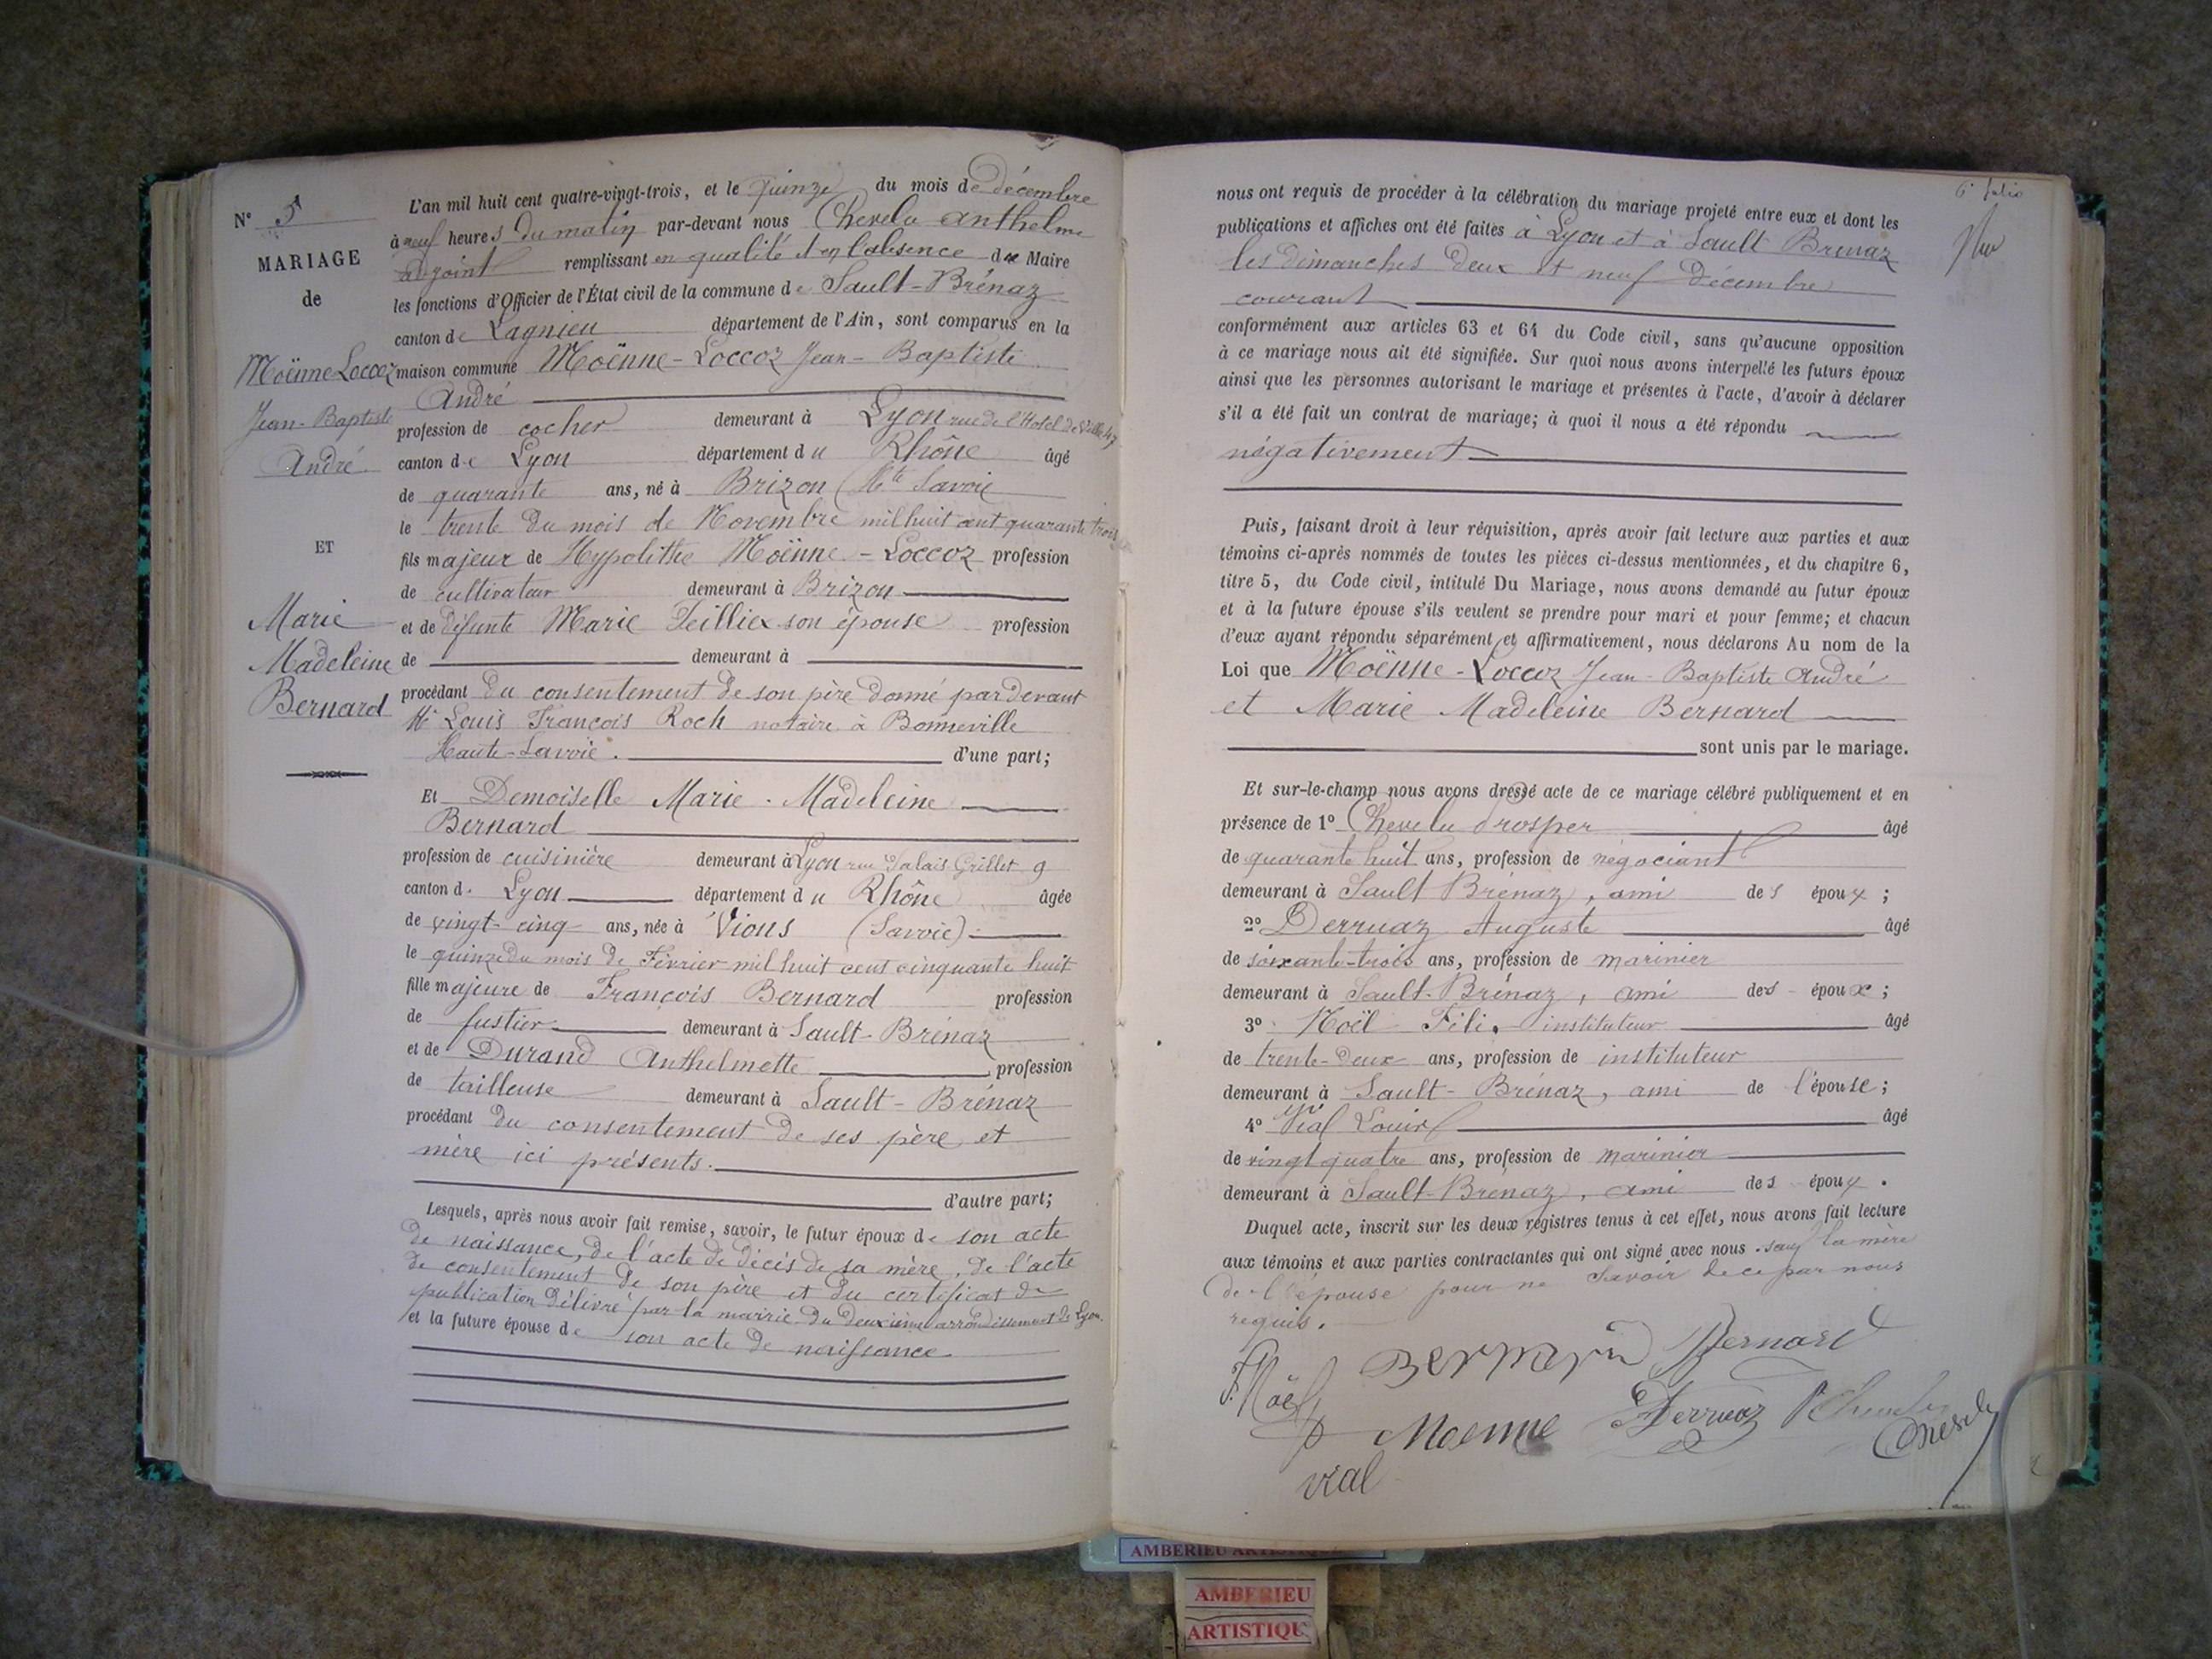 N° 5
MARIAGE
de
Moënne-Loccoz
Jean-Baptiste
André
ET
Marie
Madeleine
Bernard
L'an mil huit cent quatre-vingt-trois, et le quinze du mois de décembre
à neuf heures du matin par-devant nous Chevelu Anthelme
adjoint remplissant en qualité et en l'absence du Maire
les fonctions d'Officier de l'État civil de la commune de Sault-Brénaz
canton de Lagnieu département de l'Ain, sont comparus en la
maison commune Moënne-Loccoz Jean-Baptiste
André
profession de cocher demeurant à Lyon rue de l'Hotel de Ville 47
canton de Lyon département du Rhône âgé
de quarante ans, né à Brizon (Hte Savoie
le trente du mois de Novembre mil huit cent quarante trois
fils majeur de Hypolithe Moënne-Loccoz profession
de cultivateur demeurant à Brizon
et de défunte Marie Teillier son épouse profession
de demeurant à
procédant du consentement de son père donné par devant
Me Louis François Roch notaire à Bonneville
Haute-Savoie. d'une part;
Et Demoiselle Marie-Madeleine
Bernard
profession de cuisinière demeurant à Lyon rue Palais Grillet 9
canton d. Lyon département du Rhône âgée
de vingt-cinq ans, née à Vions (Savoie)
le quinze du mois de Février mil huit cent cinquante huit
fille majeure de François Bernard profession
de fustier demeurant à Sault-Brénaz
et de Durand Anthelmette profession
de tailleuse demeurant à Sault-Brénaz
procédant du consentement de ses père et
mère ici présents.
d'autre part;
Lesquels, après nous avoir fait remise, savoir, le futur époux de son acte
de naissance, de l'acte de décès de sa mère, de l'acte
de consentement de son père et du certificat de
publication délivré par la mairie du deuxième arrondissement de Lyon.
et la future épouse de son acte de naissance
6e folio
nous ont requis de procéder à la célébration du mariage projeté entre eux et dont les
publications et affiches ont été faites à Lyon et à Sault Brénaz
les dimanches deux et neuf décembre
courant
conformément aux articles 63 et 64 du Code civil, sans qu'aucune opposition
à ce mariage nous ait été signifiée. Sur quoi nous avons interpellé les futurs époux
ainsi que les personnes autorisant le mariage et présentes à l'acte, d'avoir à déclarer
s'il a été fait un contrat de mariage; à quoi il nous a été répondu
négativement
Puis, faisant droit à leur réquisition, après avoir fait lecture aux parties et aux
témoins ci-après nommés de toutes les pièces ci-dessus mentionnées, et du chapitre 6,
titre 5, du Code civil, intitulé Du Mariage, nous avons demandé au futur époux
et à la future épouse s'ils veulent se prendre pour mari et pour femme; et chacun
d'eux ayant répondu séparément et affirmativement, nous déclarons Au nom de la
Loi que Moënne-Loccoz Jean-Baptiste André
et Marie Madeleine Bernard
sont unis par le mariage.
Et sur-le-champ nous avons dressé acte de ce mariage célébré publiquement et en
présence de 1° Chevelu Prosper âgé
de quarante huit ans, profession de négociant
demeurant à Sault Brénaz, ami des époux;
2° Derruaz Auguste âgé
de soixante-trois ans, profession de marinier
demeurant à Sault-Brénaz, ami des époux;
3° Noël Féli. instituteur âgé
de trente-deux ans, profession de instituteur
demeurant à Sault-Brénaz, ami de l'épouse;
4° Vial Louis âgé
de vingt quatre ans, profession de marinier
demeurant à Sault-Brénaz, ami des époux.
Duquel acte, inscrit sur les deux registres tenus à cet effet, nous avons fait lecture
aux témoins et aux parties contractantes qui ont signé avec nous. sauf la mère
de l'épouse pour ne savoir de ce par nous
requis.
F. Noël Bernard Bernard
Moenne Derruaz
vial
AMBERIEU ARTISTIQUE
AMBERIEU
ARTISTIQU